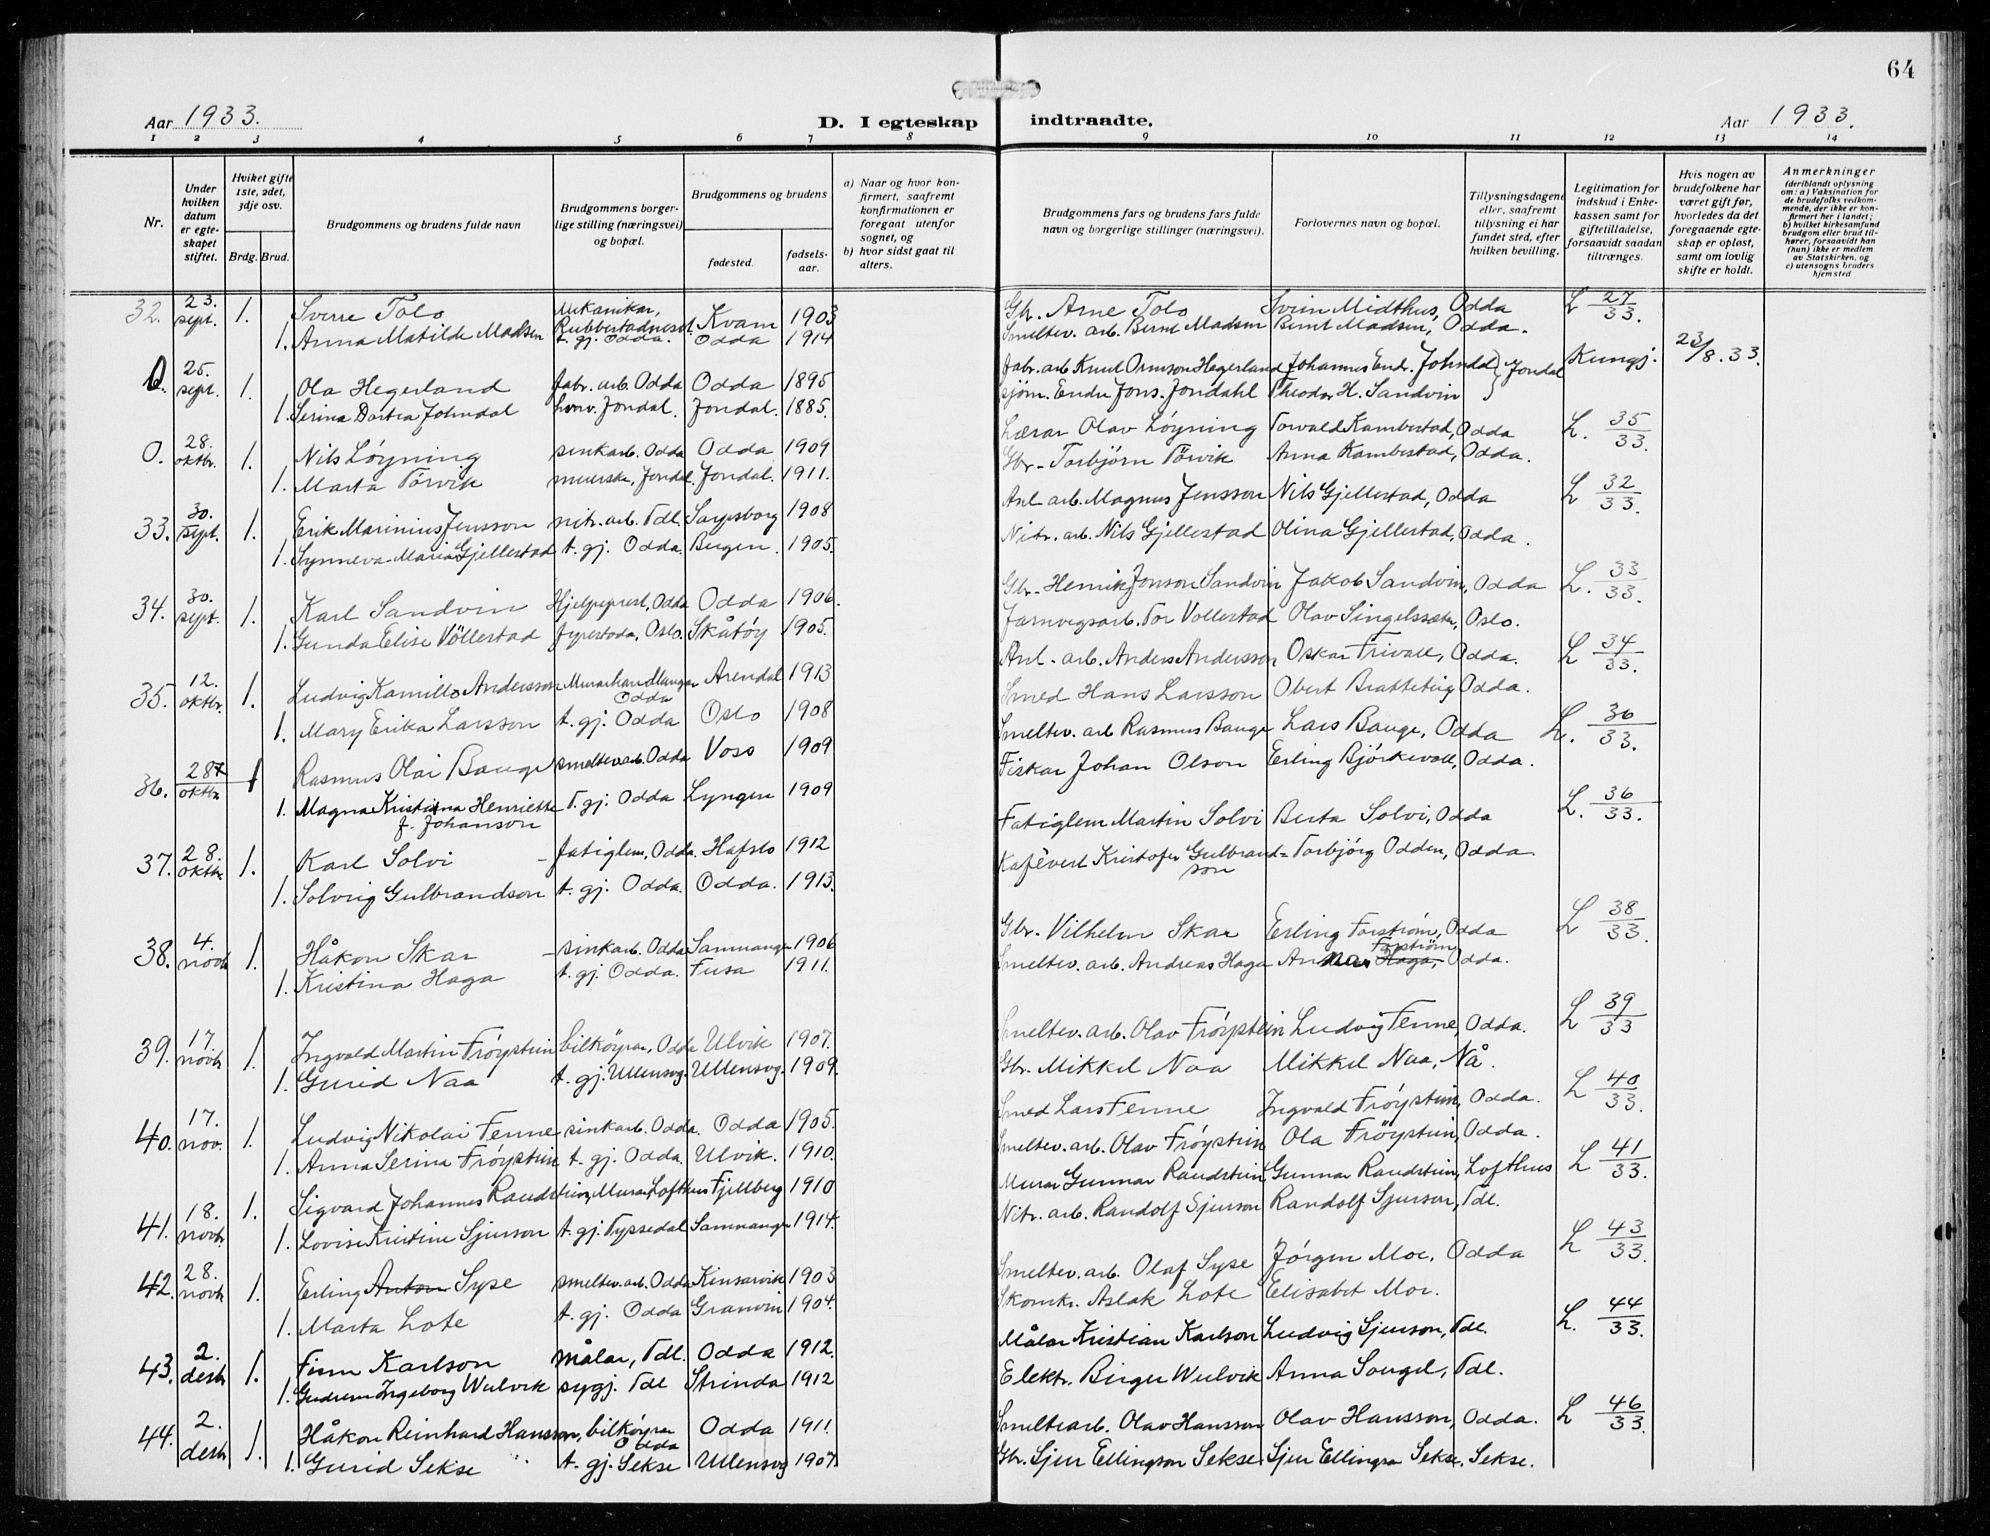 64
Aar 1933.
D. I egteskap indtraadte.
Aar 1933.
1 2 3 4 5 6 7 8 9 10 11 12 13 14
Nr.
Under hvilken datum er egteskapet stiftet.
Hviket gifte 1ste, 2det, 3dje osv.
Brdg. Brud.
Brudgommens og brudens fulde navn
Brudgommens borgerlige stilling (næringsvei) og bopæl.
Brudgommens og brudens
fødested.
fødselsaar.
a) Naar og hvor konfirmert, saafremt konfirmationen er foregaat utenfor sognet, og
b) hvor sidst gaat til alters.
Brudgommens fars og brudens fars fulde navn og borgerlige stillinger (næringsvei).
Forlovernes navn og bopæl.
Tillysningsdagene eller, saafremt tillysning ei har fundet sted, efter hvilken bevilling.
Legitimation for indskud i Enkekassen samt for giftetilladelse, forsaavidt saadan tiltrænges.
Hvis nogen av brudefolkene har været gift før, hvorledes da det foregaaende egteskap er opløst, samt om lovlig skifte er holdt.
Anmerkninger
(deriblandt oplysning om: a) Vaksination for de brudefolks vedkommende, der ikke er konfirmert her i landet; b) hvilket kirkesamfund brudgom eller brud tilhører, forsaavidt han (hun) ikke er medlem av Statskirken, og c) utensogns bruders hjemsted
32. 23. sept. 1. Sverre Tolo Mekanikar, Rubbestadneset Kvam 1903 Gbr. Arne Tolo Svein Midthus, Odda L 27/33.
1. Anna Matilde Madsen t. gj. Odda. Odda 1914 Smeltev. arb. Bernt Madsen Bernt Madsen, Odda.
0. 25. sept. 1. Ola Hegerland fabr. arb. Odda Odda 1895 Fabr. arb Knut Ormson Hegerland Johannes End. Johndal } Jondal Kungj. 23/8. 33.
1. Serina Dortea Johndal husv. Jondal. Jondal. 1885. sjøm. Endre Jons. Jondahl Theodor H. Sandvin
0. 28. oktbr. 1. Nils Løyning sinkarb. Odda Odda 1909 Lærar Olav Løyning Torvald Kambestad, Odda L. 35/33.
1. Marta Törvik meierske, Jondal. Jondal. 1911. Gbr. Torbjörn Törvik Anna Kambestad, Odda.
33. 30. sept. 1. Erik Marinius Jensson nitr. arb. Tdl. Sarpsborg 1908 Anl. arb. Magnus Jensson Nils Gjellestad, Odda L 32/33.
1. Synneva Maria Gjellestad t. gj. Odda. Bergen. 1905. Nitr. arb. Nils Gjellestad Olina Gjellestad, Odda.
34. 30. sept. 1. Karl Sandvin Hjelpeprest, Odda Odda 1906. Gbr. Henrik Jonson Sandvin Jakob Sandvin, Odda L. 33/33.
1. Gunda Elise Völlestad Oslo. Skåtöy 1905. Jarnvegsarb. Tor Vollestad Olav Oslo.
35. 12. oktbr. 1. Ludvig Kamillo Andersson Murarhandlangar Odda Arendal 1913 Anl. arb. Anders Andersson Oskar Trivall, Odda. L 34/33.
1. Mary Erika Larsson t. gj. Odda Oslo 1908 Smed Hans Larsson Obert Brattebeig Odda.
36. 28 oktbr. 1 Rasmus Olai Bauge smeltev. arb. Odda Voss 1909 Smeltev. arb Rasmus Bauge Lars Bauge, Odda L. 36/33.
1. Magna Kristina Henriette f. Johanson T. gj. Odda Lyngen 1909 Fiskar Johan Olson Erling Bjórkevoll, Odda.
37. 28. oktbr 1. Karl Solvi Odda. Hafslo 1912 Martin Solvi Berta Solvi, Odda L. 36/33.
1. Solvig Gulbrandson t. gj. Odda. Odda. 1913. Kafévert Kristofer Gulbrandson Torbjörg Odden, Odda.
38. 4. novb 1. Håkon Skar sinkarb. Odda Samnanger 1906 Gbr. Vilhelm Skar Erling Forström, Odda L 38/33.
1. Kristina Haga t. gj. Odda. Fusa 1911. Smeltev. arb. Andreas Haga Anna Haga, Forström Odda.
39. 17. novb. 1. Ingvald Martin Fróystein bilköyrar, Odda Ulvik 1907. Smeltev. arb. Olav Fróystein Ludvig Tenne, Odda. L 39/33
1. Gurid Naa t. gj. Ullensvg. Ullensvg. 1909. Gbr. Mikkel Naa Mikkel Naa, Nå.
40. 17. nov. 1. Ludvig Nikolai Tenne sinkarb. Odda. Odda 1905. Smed Lars Tenne Ingvald Fróystein, Odda. L 40/33.
1. Anna Serina Fróystein t. gj. Odda. Ulvik. 1910. Smeltev. arb. Olav Fróystein Ola Fröystein, Odda.
41. 18. novb. 1. Sigvard Johannes Raudstein, Murar Lofthus Fjellberg 1910 Murar Gunnar Raudstein, Gunnar Raudstein, Lofthus L 41/33.
1. Lovise Kristine Sjurson t. gj. Tyssedal Samnanger 1914. Nitr. arb. Randolf Sjurson Randolf Sjurson, Tdl.
42. 28. novb 1. Erling Anton Syse smeltev. arb. Odda Kinsarvik 1903 Smeltev. arb. Olaf Syse Jörgen Moe, Odda L 43/33.
1. Marta Lote t. gj. Odda Granvin 1904. Skomkr. Aslak Lote Elisabet Moe.
43. 2. desb 1. Finn Karlson målar, Tdl. Odda 1912. Målar Kristian Karlson Ludvig Sjurson, Tdl. L. 44/33.
1. Gudrun Ingeborg Wulvik sygj. Tdl Strinda 1912 Elektr. Birger Wulvik Anna Tdl.
44. 2. desb 1. Håkon Reinhard Hansson, bilköyrar Odda Odda 1911. Smeltearb. Olav Hansson Olav Hansson, Odda. L 46/33.
1. Gurid Sekse t. gj. Sekse Ullensvg 1907. Gbr. Sjur Ellingson Sekse Sjur Ellingson Sekse. Sekse.